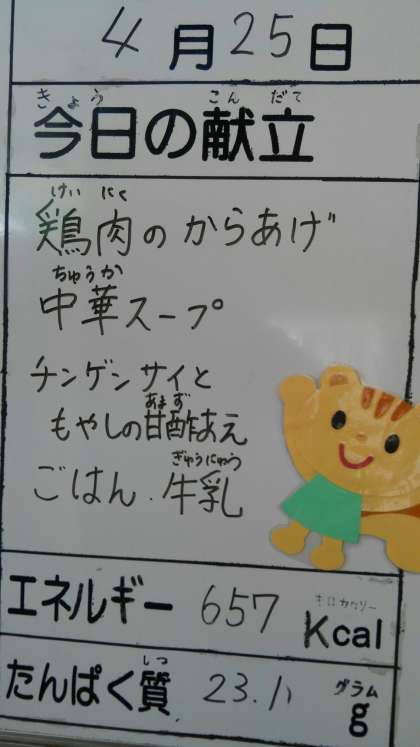 4月25日
きょう こん だて
今日の献立
けい にく
鶏肉のからあげ
ちゅうか
中華スープ
チンゲンサイと
あまず
もやしの甘酢あえ
ぎゅうにゅう
ごはん.牛乳
キロカロリー
エネルギー 657 Kcal
しつ グラム
たんぱく質 23.1 g